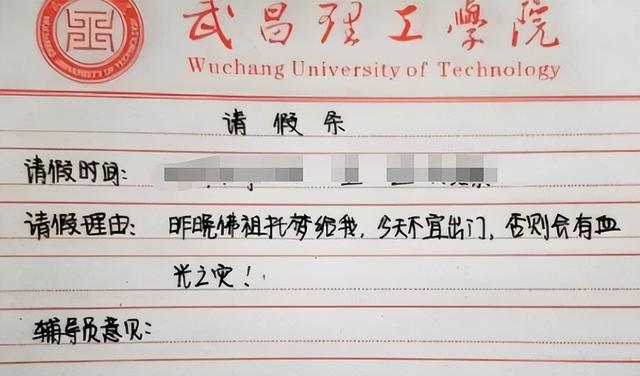 武昌理工學院
Wuchang University of Technology
请假条
请假时间:
请假理由: 昨晚佛祖托梦给我, 今天不宜出门, 否则会有血
光之灾!
辅导员意见: